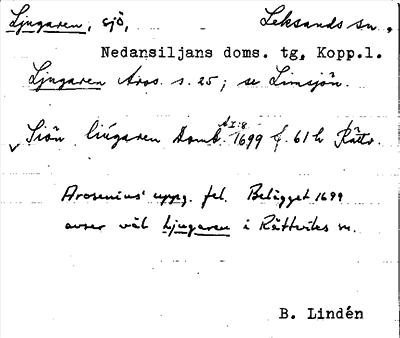 Ljugaren, sjö, Leksands sn.,
Nedansiljans doms. tg, Kopp.l.
Ljugaren Aros. s. 25; se Limsjön.
AI:8
v Siön liugaren Domb. 1699 f. 61 h Rättv.
Arosenius' uppg. fel. Belägget 1699
avser väl Ljugaren i Rättviks sn.
B. Lindén